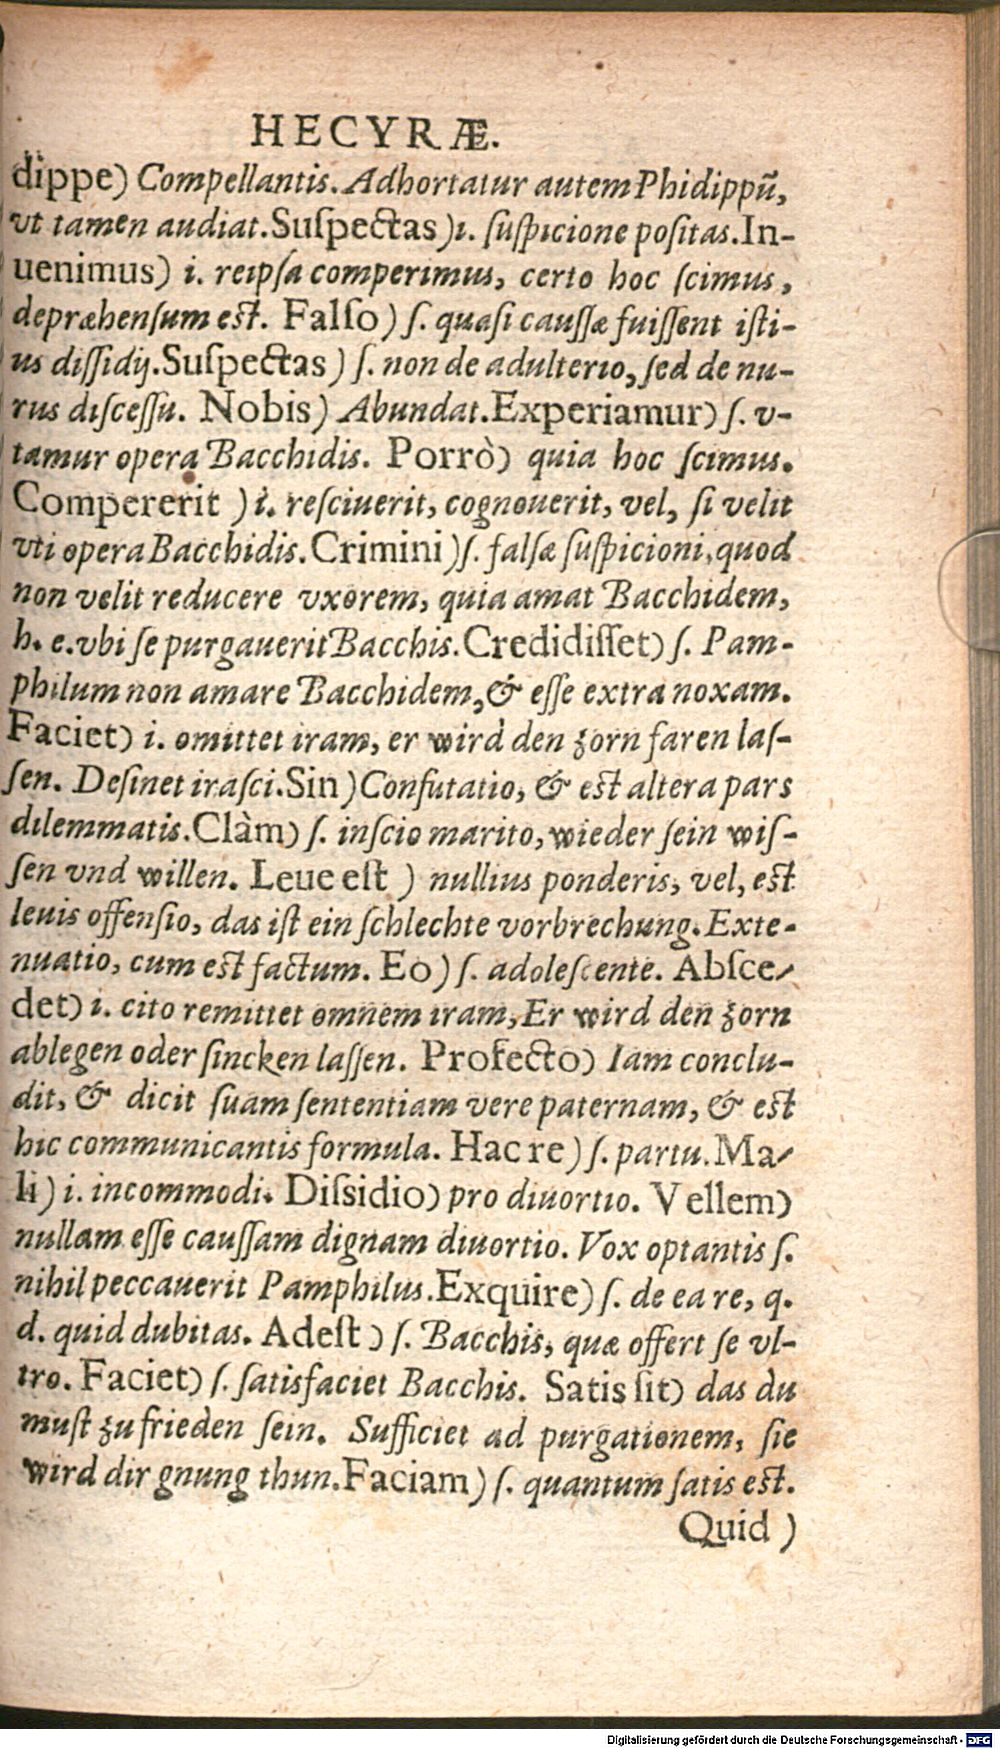 HECYRÆ.
dippe) Compellantis. Adhortatur autem Phidippũ,
vt tamen audiat. Suſpectas) i. ſuſpicione poſitas. In-
uenimus) i. reipſa comperimus, certo hoc ſcimus,
depræhenſum est. Falſo) ſ. quaſi cauſſæ fuiſſent iſti-
us diſſidij. Suſpectas) ſ. non de adulterio, ſed de nu-
rus diſceſſu. Nobis) Abundat. Experiamur) ſ. v-
tamur opera Bacchidis. Porrò) quia hoc ſcimus.
Compererit) i. reſciuerit, cognouerit, vel, ſi velit
vti opera Bacchidis. Crimini) ſ. falſæ ſuſpicioni, quod
non velit reducere vxorem, quia amat Bacchidem,
h. e. vbi ſe purgauerit Bacchis. Credidiſſet) ſ. Pam-
philum non amare Bacchidem, & eſſe extra noxam.
Faciet) i. omittet iram, er wird den zorn faren laſ-
ſen. Deſinet iraſci. Sin) Confutatio, & est altera pars
dilemmatis. Clàm) ſ. inſcio marito, wieder ſein wiſ-
ſen vnd willen. Leue eſt) nullius ponderis, vel, est
leuis offenſio, das iſt ein ſchlechte vorbrechung. Exte-
nuatio, cum est factum. Eo) ſ. adoleſcente. Abſce-
det) i. cito remittet omnem iram, Er wird den zorn
ablegen oder ſincken laſſen. Profecto) Iam conclu-
dit, & dicit ſuam ſententiam vere paternam, & est
hic communicantis formula. Hac re) ſ. partu. Ma-
li) i. incommodi. Diſsidio) pro diuortio. Vellem)
nullam eſſe cauſſam dignam diuortio. Vox optantis ſ.
nihil peccauerit Pamphilus. Exquire) ſ. de ea re, q.
d. quid dubitas. Adeſt) ſ. Bacchis, quæ offert ſe vl-
tro. Faciet) ſ. ſatisfaciet Bacchis. Satis ſit) das du
muſt zu frieden ſein. Sufficiet ad purgationem, ſie
wird dir gnung thun. Faciam) ſ. quantum ſatis est.
Quid)
Digitalisierung gefördert durch die Deutsche Forschungsgemeinschaft - DFG